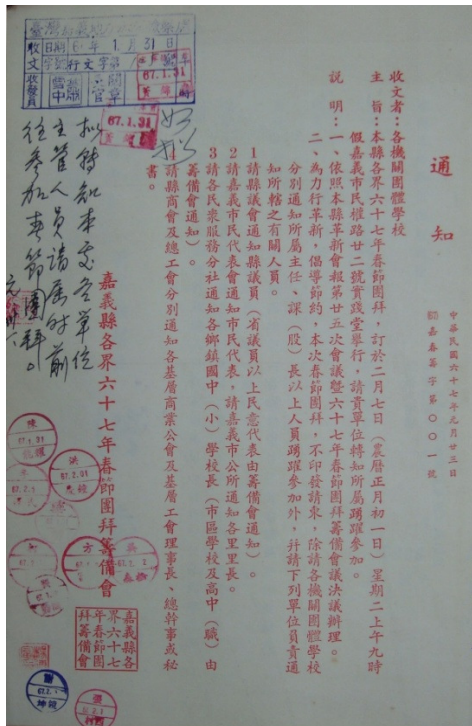 通知
中華民國六十七年元月廿三日
嘉春籌字第〇〇一號
收文者：各機關團體學校
主旨：本縣各界六十七年春節團拜，訂於二月七日（農曆正月初一日）星期二上午九時
假嘉義市民權路廿二號實踐堂舉行，請貴單位轉知所屬踴躍參加。
說明：一、依照本縣革新會報第廿五次會議暨六十七年春節團拜籌備會議決議辦理。
二、為力行革新，倡導節約，本次春節團拜，不印發請柬，除請各機關團體學校
分別通知所屬主任、課（股）長以上人員踴躍參加外，并請下列單位負責通
知所轄之有關人員。
1請縣議會通知縣議員（省議員以上民意代表由籌備會通知）。
2請嘉義市民代表會通知市民代表，請嘉義市公所通知各里里長。
3請各民眾服務分社通知各鄉鎮國中（小）學校長（市區學校及高中（職）由
籌備會通知）。
4請縣商會及總工會分別通知各基層商業公會及基層工會理事長、總幹事或秘
書。
嘉義縣各界六十七年春節團拜籌備會
嘉義縣各
界六十七
年春節團
拜籌備會
擬轉知本處各單位
主管人員請屆時前
往參加春節團拜。
如擬
收文
日期 6 年 1 月 31 日
字號 行文字第
收發員
67.1.31
67.1.31
陳
67.1.31
洪
67.2.01
方
吳
謝
67.2.1
坤鏡